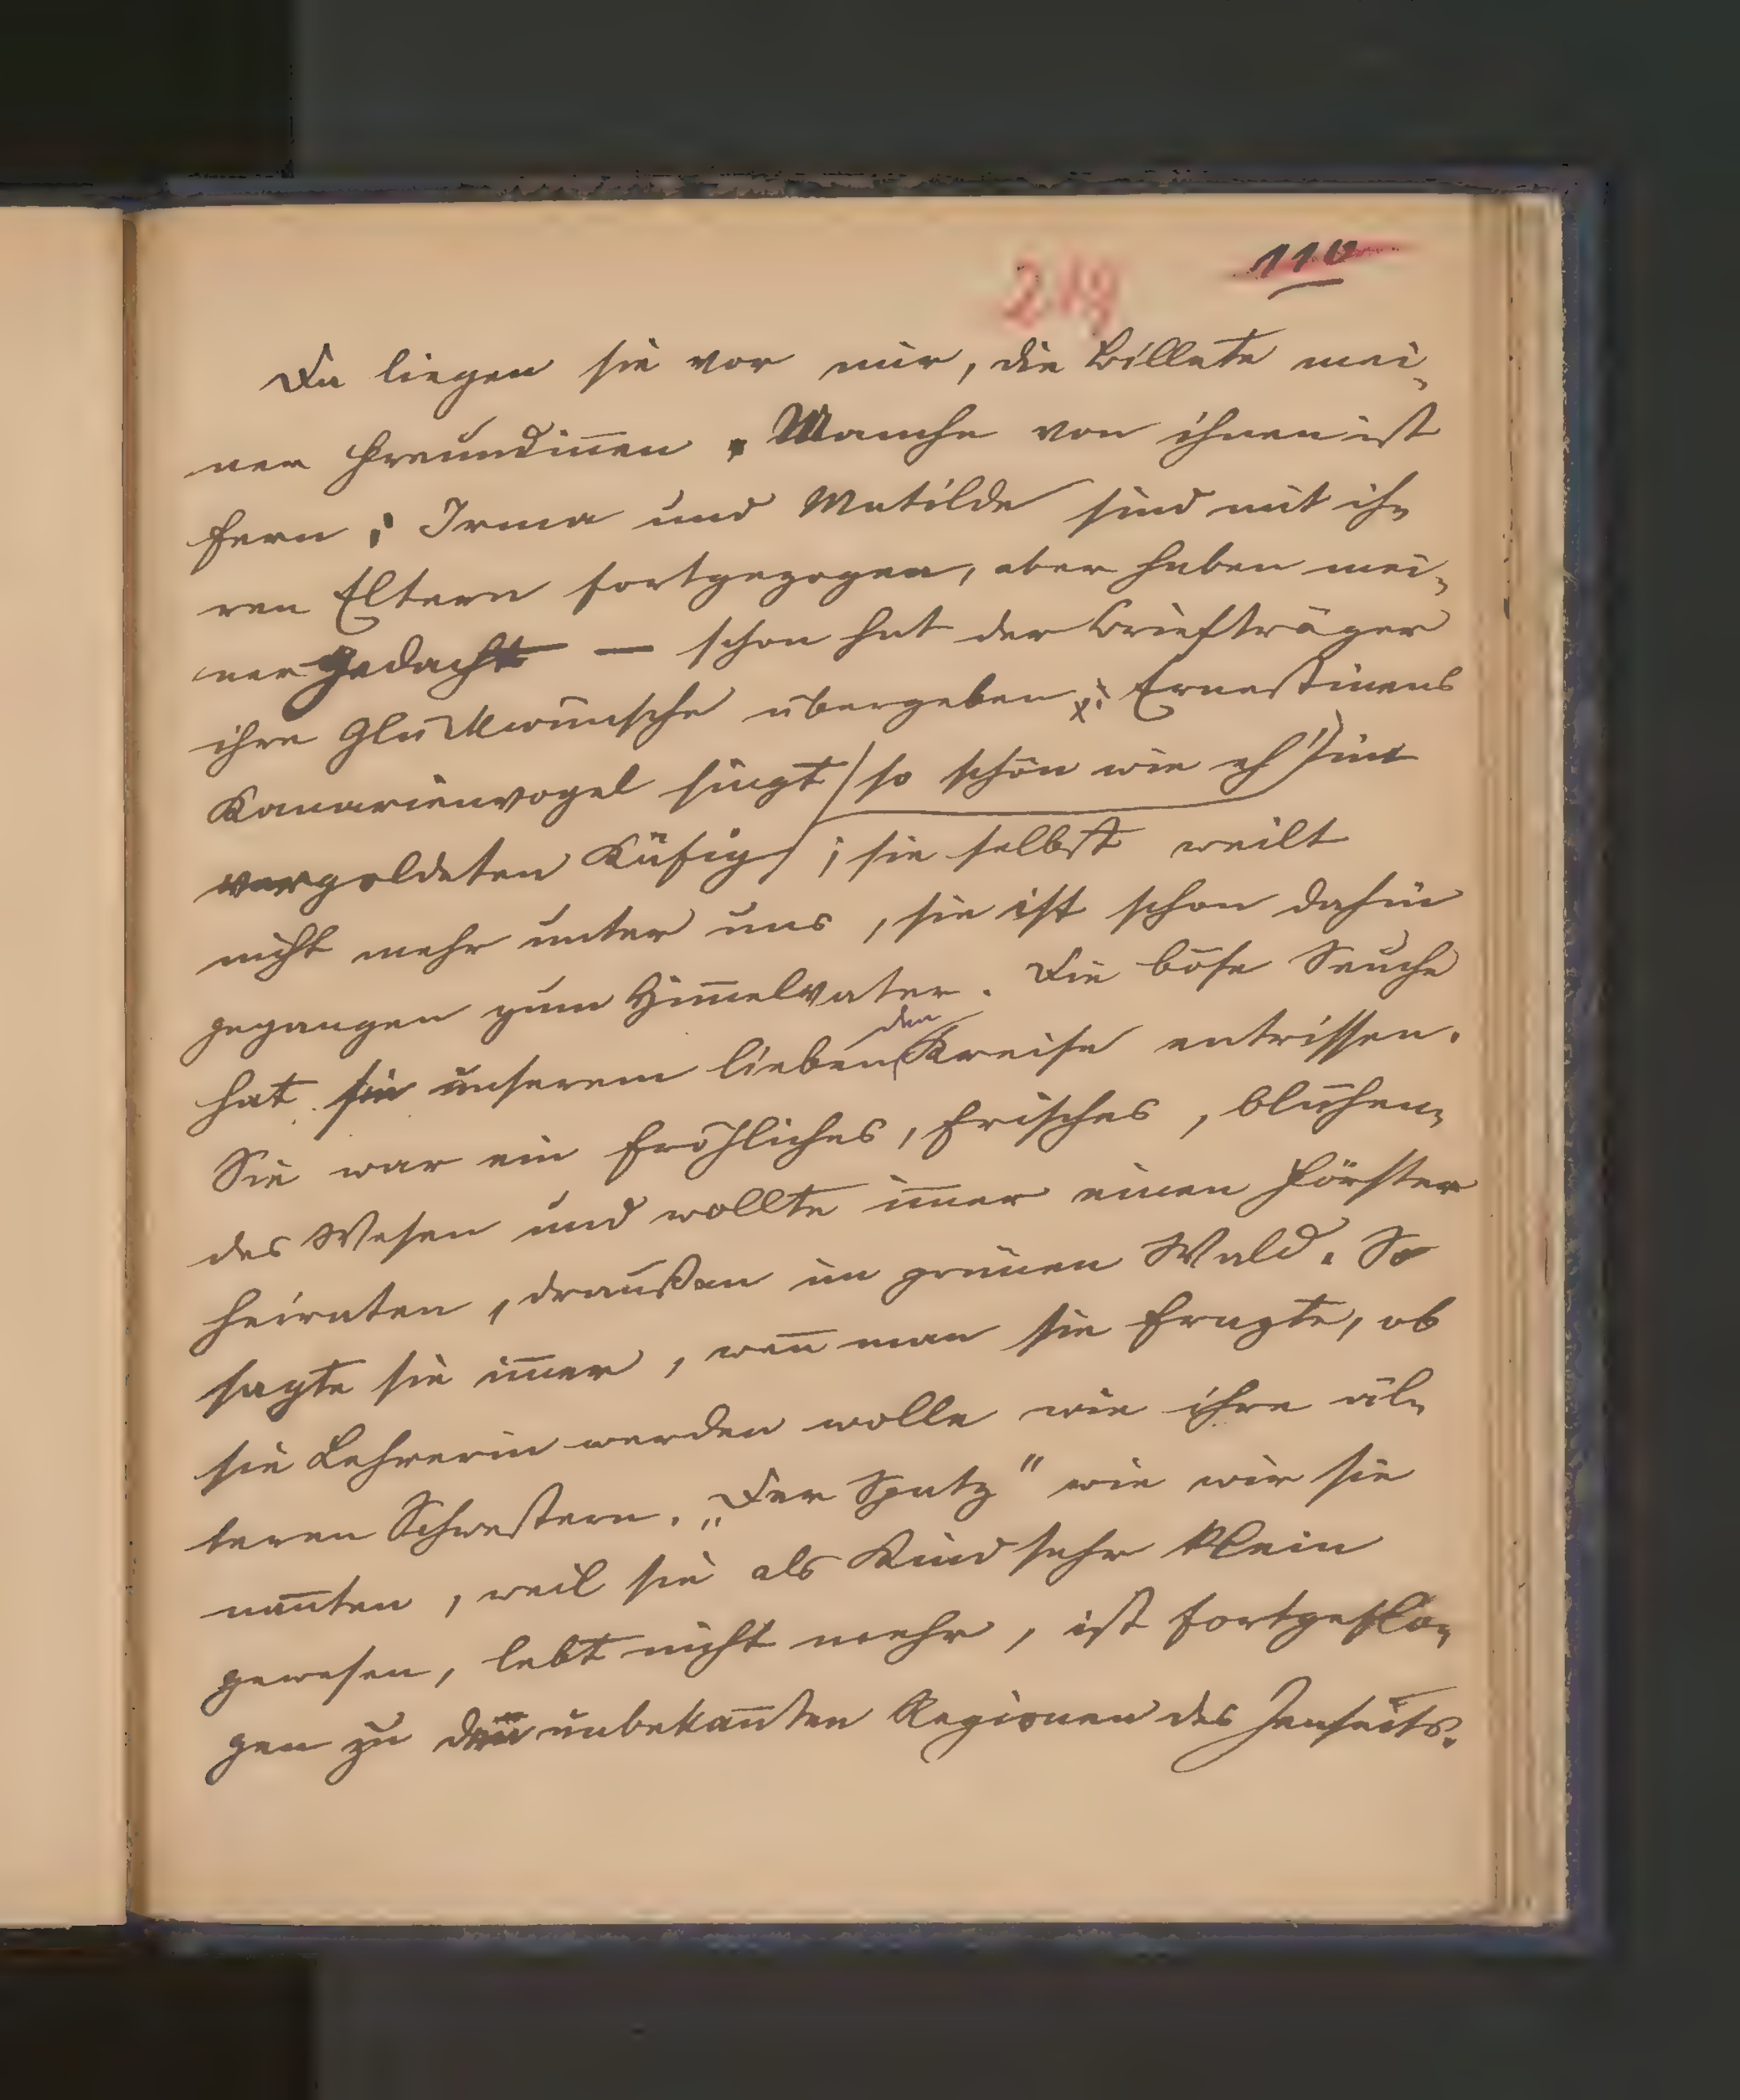 219 110
Da liegen sie vor mir, die Billete mei-
ner Freundinen. Manche von ihnen ist
fern; Irma und Matilde sind mit ih-
ren Eltern fortgezogen, aber haben mei-
ner gedacht — schon hat der Briefträger
ihre Glückwünsche übergeben; Ernestinens
Kanarienvogel singt (so schön wie eh') im
vergoldeten Käfig; sie selbst weilt
nicht mehr unter uns, sie ist schon dahin
gegangen zum Himelvater. Die böse Seuche
den
hat sie unserem lieben Kreise entrissen.
Sie war ein fröhliches, frisches, blühen-
des Wesen und wollte imer einen Förster
heiraten, draußen im grünen Wald. So
sagte sie imer, wen man sie fragte, ob
sie Lehrerin werden wolle wie ihre äl-
teren Schwestern. „Der Spatz" wie wir sie
nanten, weil sie als Kind sehr klein
gewesen, lebt nicht mehr, ist fortgeflo-
gen zu den unbekanten Regionen des Jenseits.